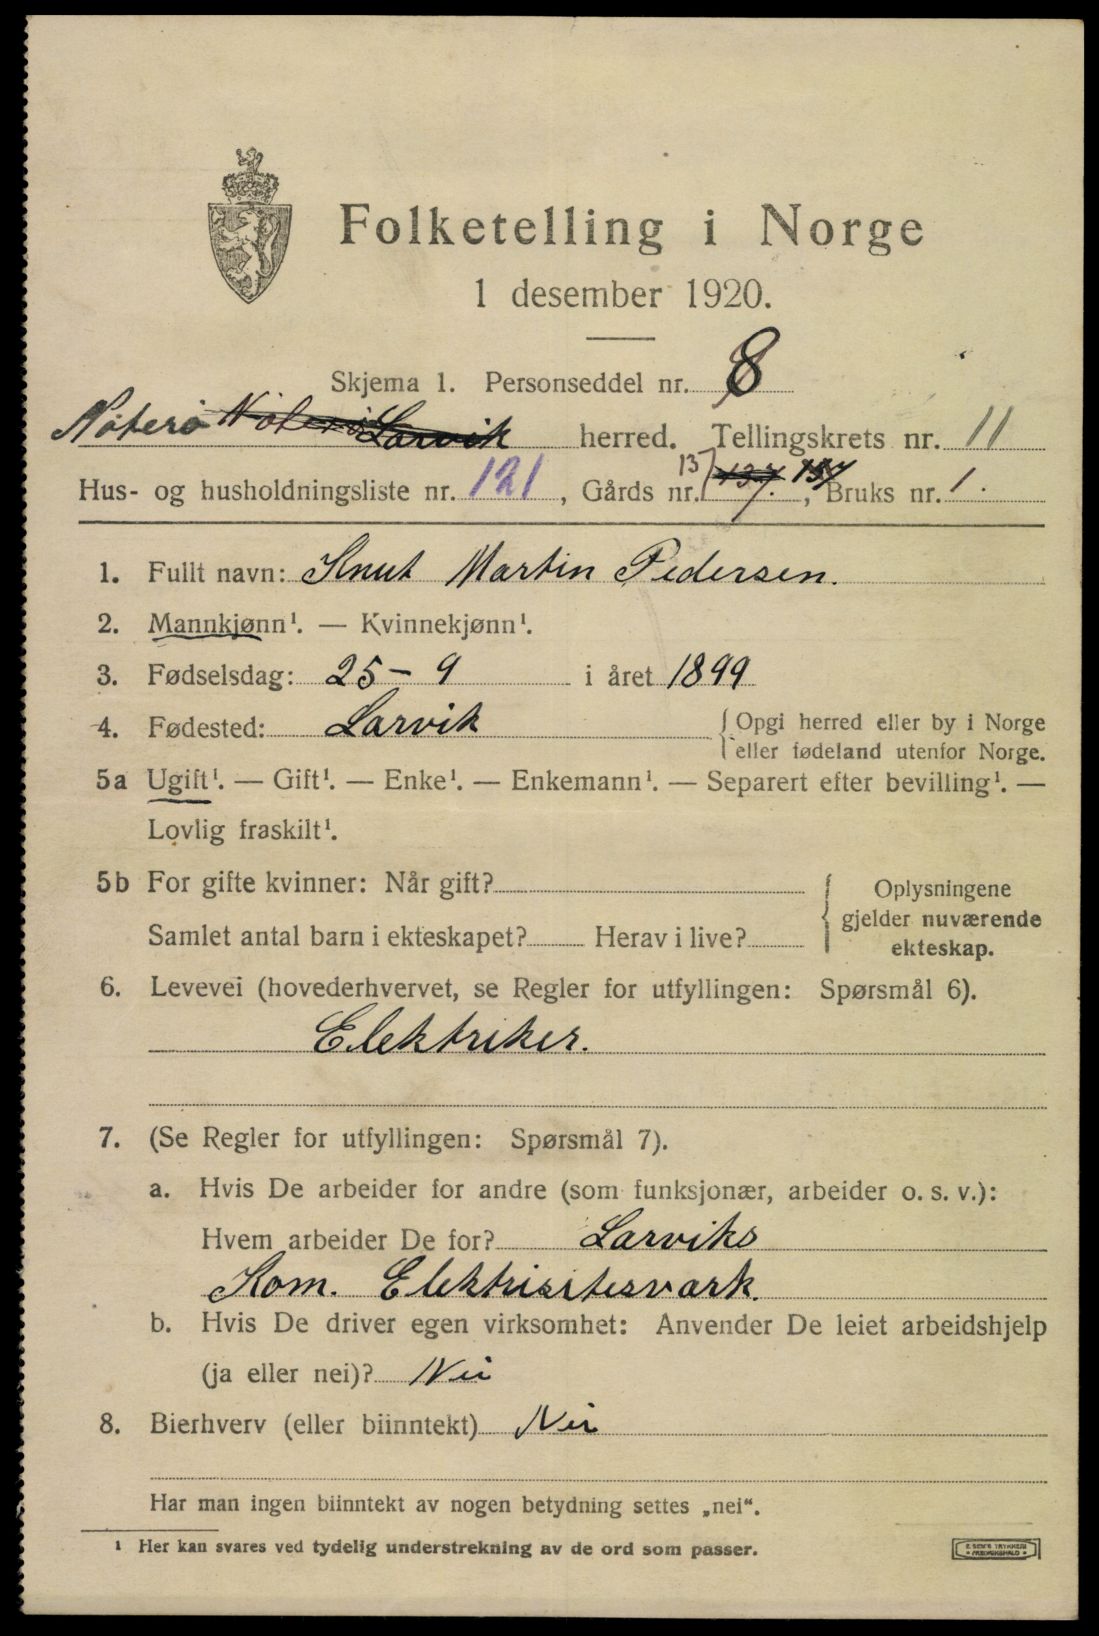 Folketelling i Norge
1 desember 1920.
Skjema 1. Personseddel nr. 8
Nøterø Nøterø Larvik herred. Tellingskrets nr. 11
Hus- og husholdningsliste nr. 121, Gårds nr. 137 137. 137, Bruks nr. 1.
1. Fullt navn: Knut Martin Pedersen.
2. Mannkjønn¹. — Kvinnekjønn¹.
3. Fødselsdag: 25 – 9 i året 1899
4. Fødested: Larvik {Opgi herred eller by i Norge
eller fødeland utenfor Norge.
5a Ugift¹. — Gift¹. — Enke¹. — Enkemann¹. — Separert efter bevilling¹. —
Lovlig fraskilt¹.
5b For gifte kvinner: Når gift?
Samlet antal barn i ekteskapet? Herav i live?
{ Oplysningene
gjelder nuværende
ekteskap.
6. Levevei (hovederhvervet, se Regler for utfyllingen: Spørsmål 6).
Elektriker.
7. (Se Regler for utfyllingen: Spørsmål 7).
a. Hvis De arbeider for andre (som funksjonær, arbeider o. s. v.):
Hvem arbeider De for? Larviks
Kom. Elektrisitesværk.
b. Hvis De driver egen virksomhet: Anvender De leiet arbeidshjelp
(ja eller nei)? Nei
8. Bierhverv (eller biinntekt) Nei
Har man ingen biinntekt av nogen betydning settes „nei“.
¹ Her kan svares ved tydelig understrekning av de ord som passer.